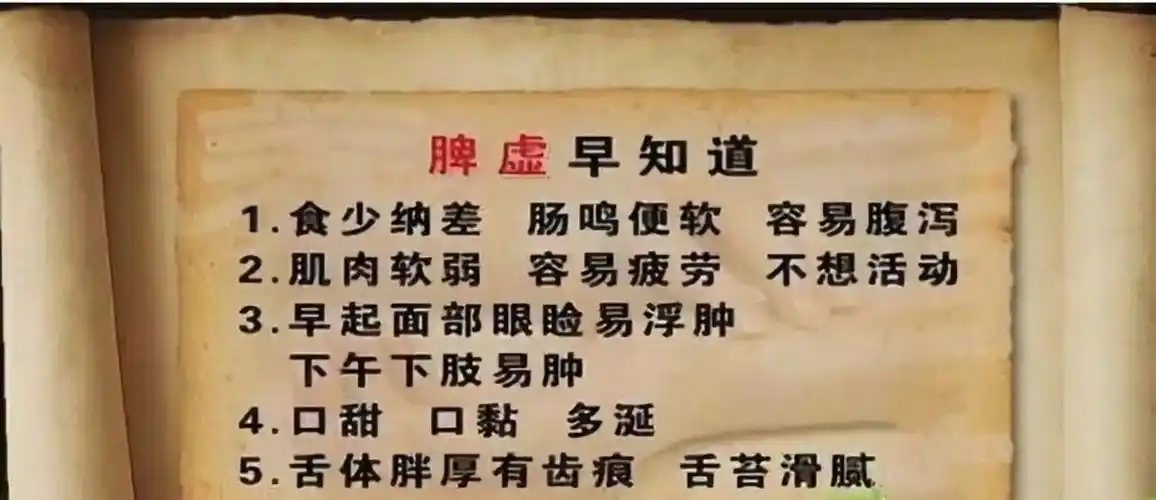 脾虚早知道
1.食少纳差 肠鸣便软 容易腹泻
2.肌肉软弱 容易疲劳 不想活动
3.早起面部眼睑易浮肿
下午下肢易肿
4.口甜 口黏 多涎
5.舌体胖厚有齿痕 舌苔滑腻